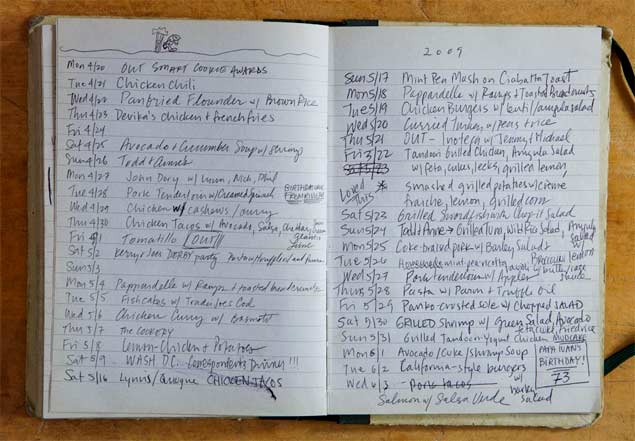 Mon 4/20 OUT SMART COOKIE AWARDS
Tue 4/21 Chicken Chili
Wed 4/22 Panfried Flounder w/ Brown Rice
Thu 4/23 Devika's chicken + french fries
Fri 4/24
Sat 4/25 Avocado + Cucumber Soup w/ Shrimp
Sun 4/26 Todd + Anne's
Mon 4/27 John Dory w/ Nick, Phil
Tue 4/28 Pork Tenderloin w/ Creamed
Wed 4/29 Chicken w/ cashews / curry
Thu 4/30 Chicken Tacos w/ Avocado, Salsa, Cheddar, Cream
Fri 5/1 Tomatillo / OUT
Sat 5/2 Kerry + Joe's DERBY party
Sun 5/3
Mon 5/4 Pappardelle w/ Ramps + toasted breadcrumbs
Tue 5/5 Fishcakes w/ Trader Joes Cod
Wed 5/6 Chicken Curry w/ Basmati
Thu 5/7 The COOKERY
Fri 5/8 Lemon-Chicken + Potatoes
Sat 5/9 WASH DC. Correspondents Dinner!!!
Sat 5/16 CHICKEN TACOS
2009
Sun 5/17 Mint Pea Mash on Ciabatta Toast
Mon 5/18 Pappardelle w/ Ramps + Toasted Breadcrumbs
Tue 5/19 Chicken Burgers w/ lentil/arugula salad
Wed 5/20 Curried Turkey w/ Peas + rice
Thu 5/21 OUT - Inoteca w/ Jenny + Michael
Fri 5/22 Tandoori Grilled Chicken, Arugula Salad
Sat 5/23 w/ feta, cukes, leeks, grilled lemon,
Loved This * smashed grilled potatoes w/ creme
fraiche, lemon, grilled corn
Sat 5/23 Grilled Swordfish w/ Chop-it Salad
Sun 5/24 Todd + Anne + Grilled Tuna, w/ Salad
Mon 5/25 Coke-braised pork w/ Barley Salad
Tue 5/26
Wed 5/27 Pork tenderloin w/ Apples
Thu 5/28 Pasta w/ Parm + Truffle Oil
Fri 5/29 Panko-crusted sole w/ Chopped SALAD
Sat 5/30 GRILLED Shrimp w/ Green Salad, Avocado
Sun 5/31 Grilled Tandoori Yogurt Chicken MUDCAKE
Mon 6/1 Avocado/Cuke/Shrimp Soup
Tue 6/2 California-style burgers
PAPA IVAN'S
BIRTHDAY!
73
Wed 6/3 Pork tacos
Salmon w/ Salsa Verde w/ barley salad